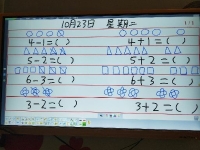 10月23日 星期二
4-1=( ) 4+1=( )
5-2=( ) 5+2=( )
6-3=( ) 6+3=( )
3-2=( ) 3+2=( )